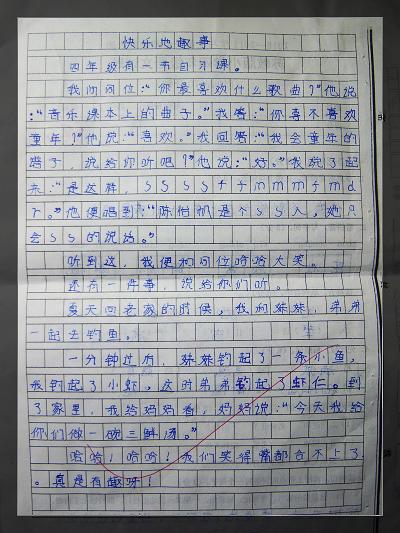 快乐地趣事
四年级有一节自习课。
我问同位：“你最喜欢什么歌曲？”他说
：“音乐课本上的曲子。”我答：“你喜不喜欢
童年？”他说：“喜欢。”我回答：“我会童年的
谱子，说给你听吧？”他说：“好。”我说了起
来：“是这样，SSSSffmmmfmd
r。”他便唱到：“陈怡帆是个SS人，她只
会SS的说话。”
听到这，我便和同位哈哈大笑。
还有一件事，说给你们听。
夏天回老家的时候，我和妹妹，弟弟
一起去钓鱼。
一分钟过后，妹妹钓起了一条小鱼，
我钓起了小虾，这时弟弟钓起了虾仁。到
了家里，我给妈妈看，妈妈说：“今天我给
你们做一碗三鲜汤。”
哈哈！哈哈！我们笑得嘴都合不上了
。真是有趣呀！